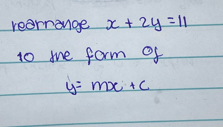 rearrange x + 2y = 11
to the form of
y = mx + c